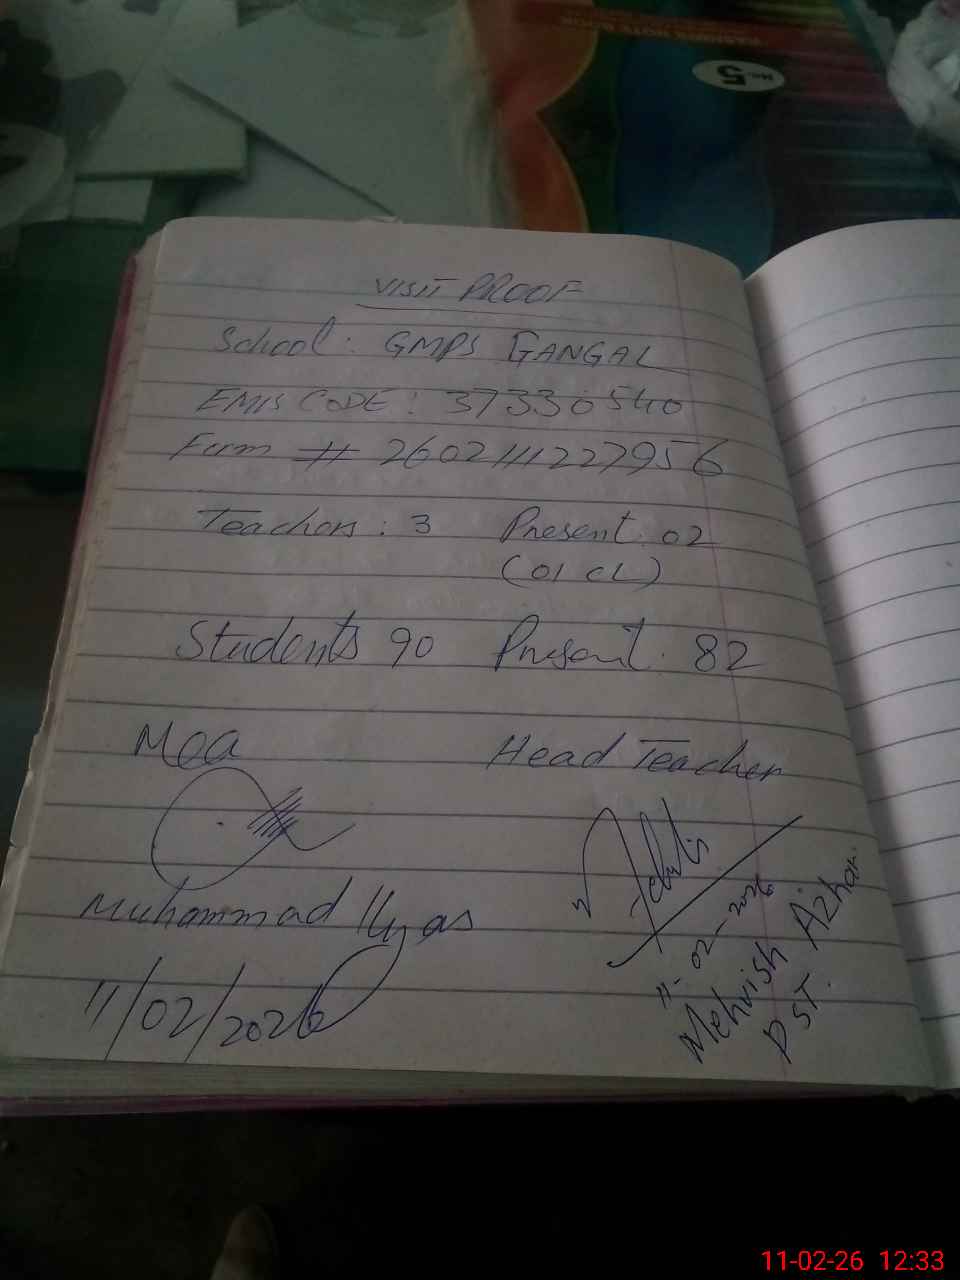 No. 5
VISIT PROOF
School: GMPS GANGAL
EMIS CODE: 37330540
Form # 2602111227956
Teachers: 3 Present: 02
(01 CL)
Students 90 Present: 82
Mea
Head Teacher
Muhammad Ilyas
11/02/2026
11-02-2026
Mehvish Azhar
PST.
11-02-26 12:33